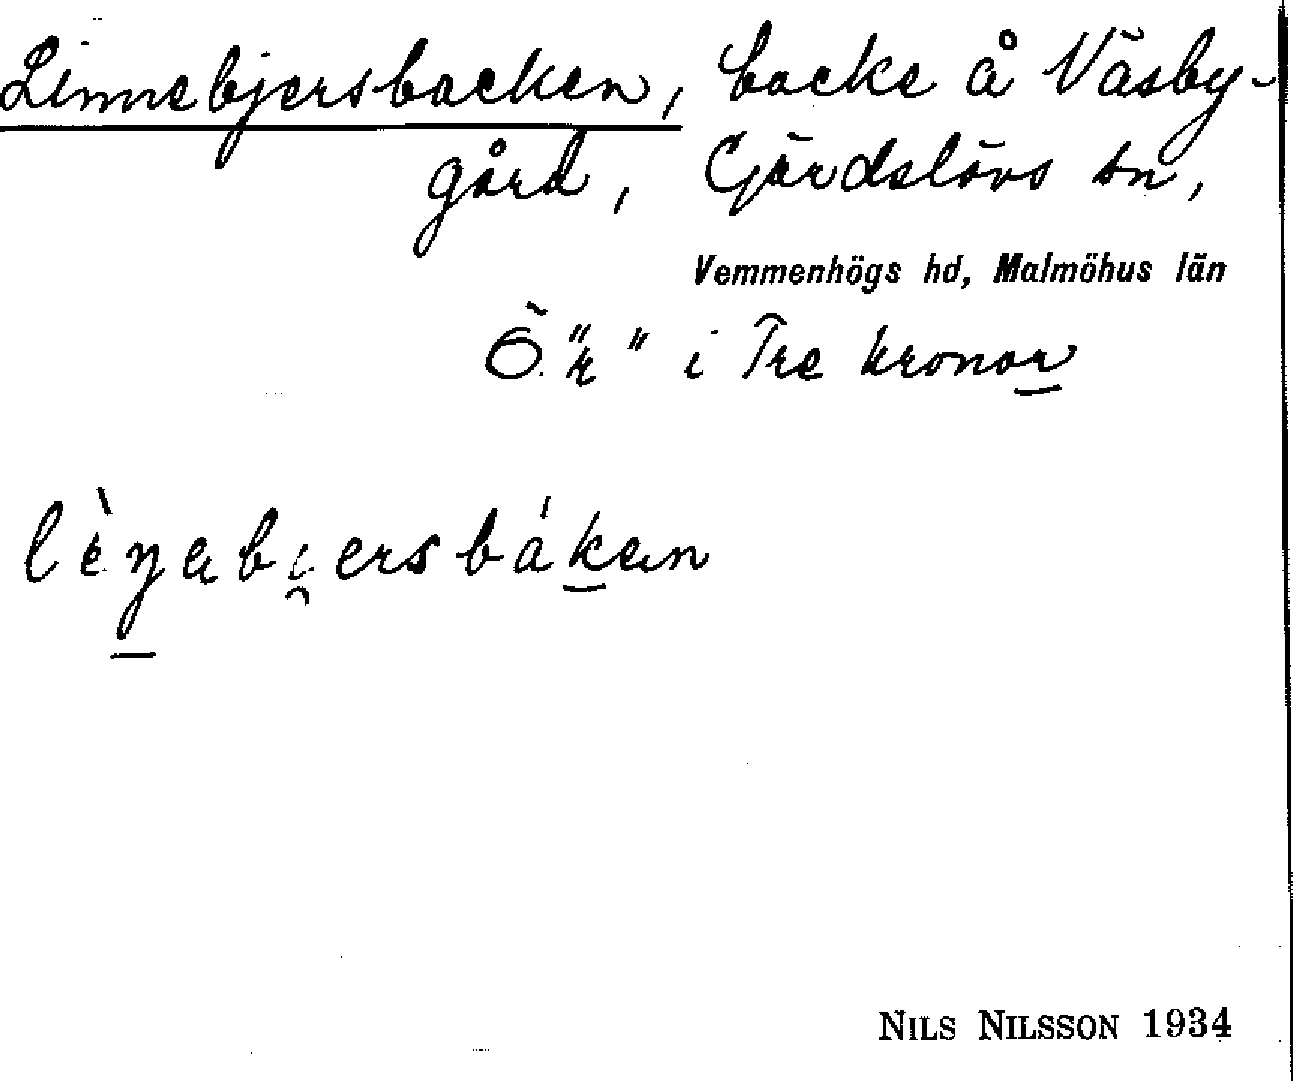 Linnebjersbacken, backe å Väsby-
gård, Gärdslövs sn,
Vemmenhögs hd, Malmöhus län
Ö "k" i Tre kronor
NILS NILSSON 1934